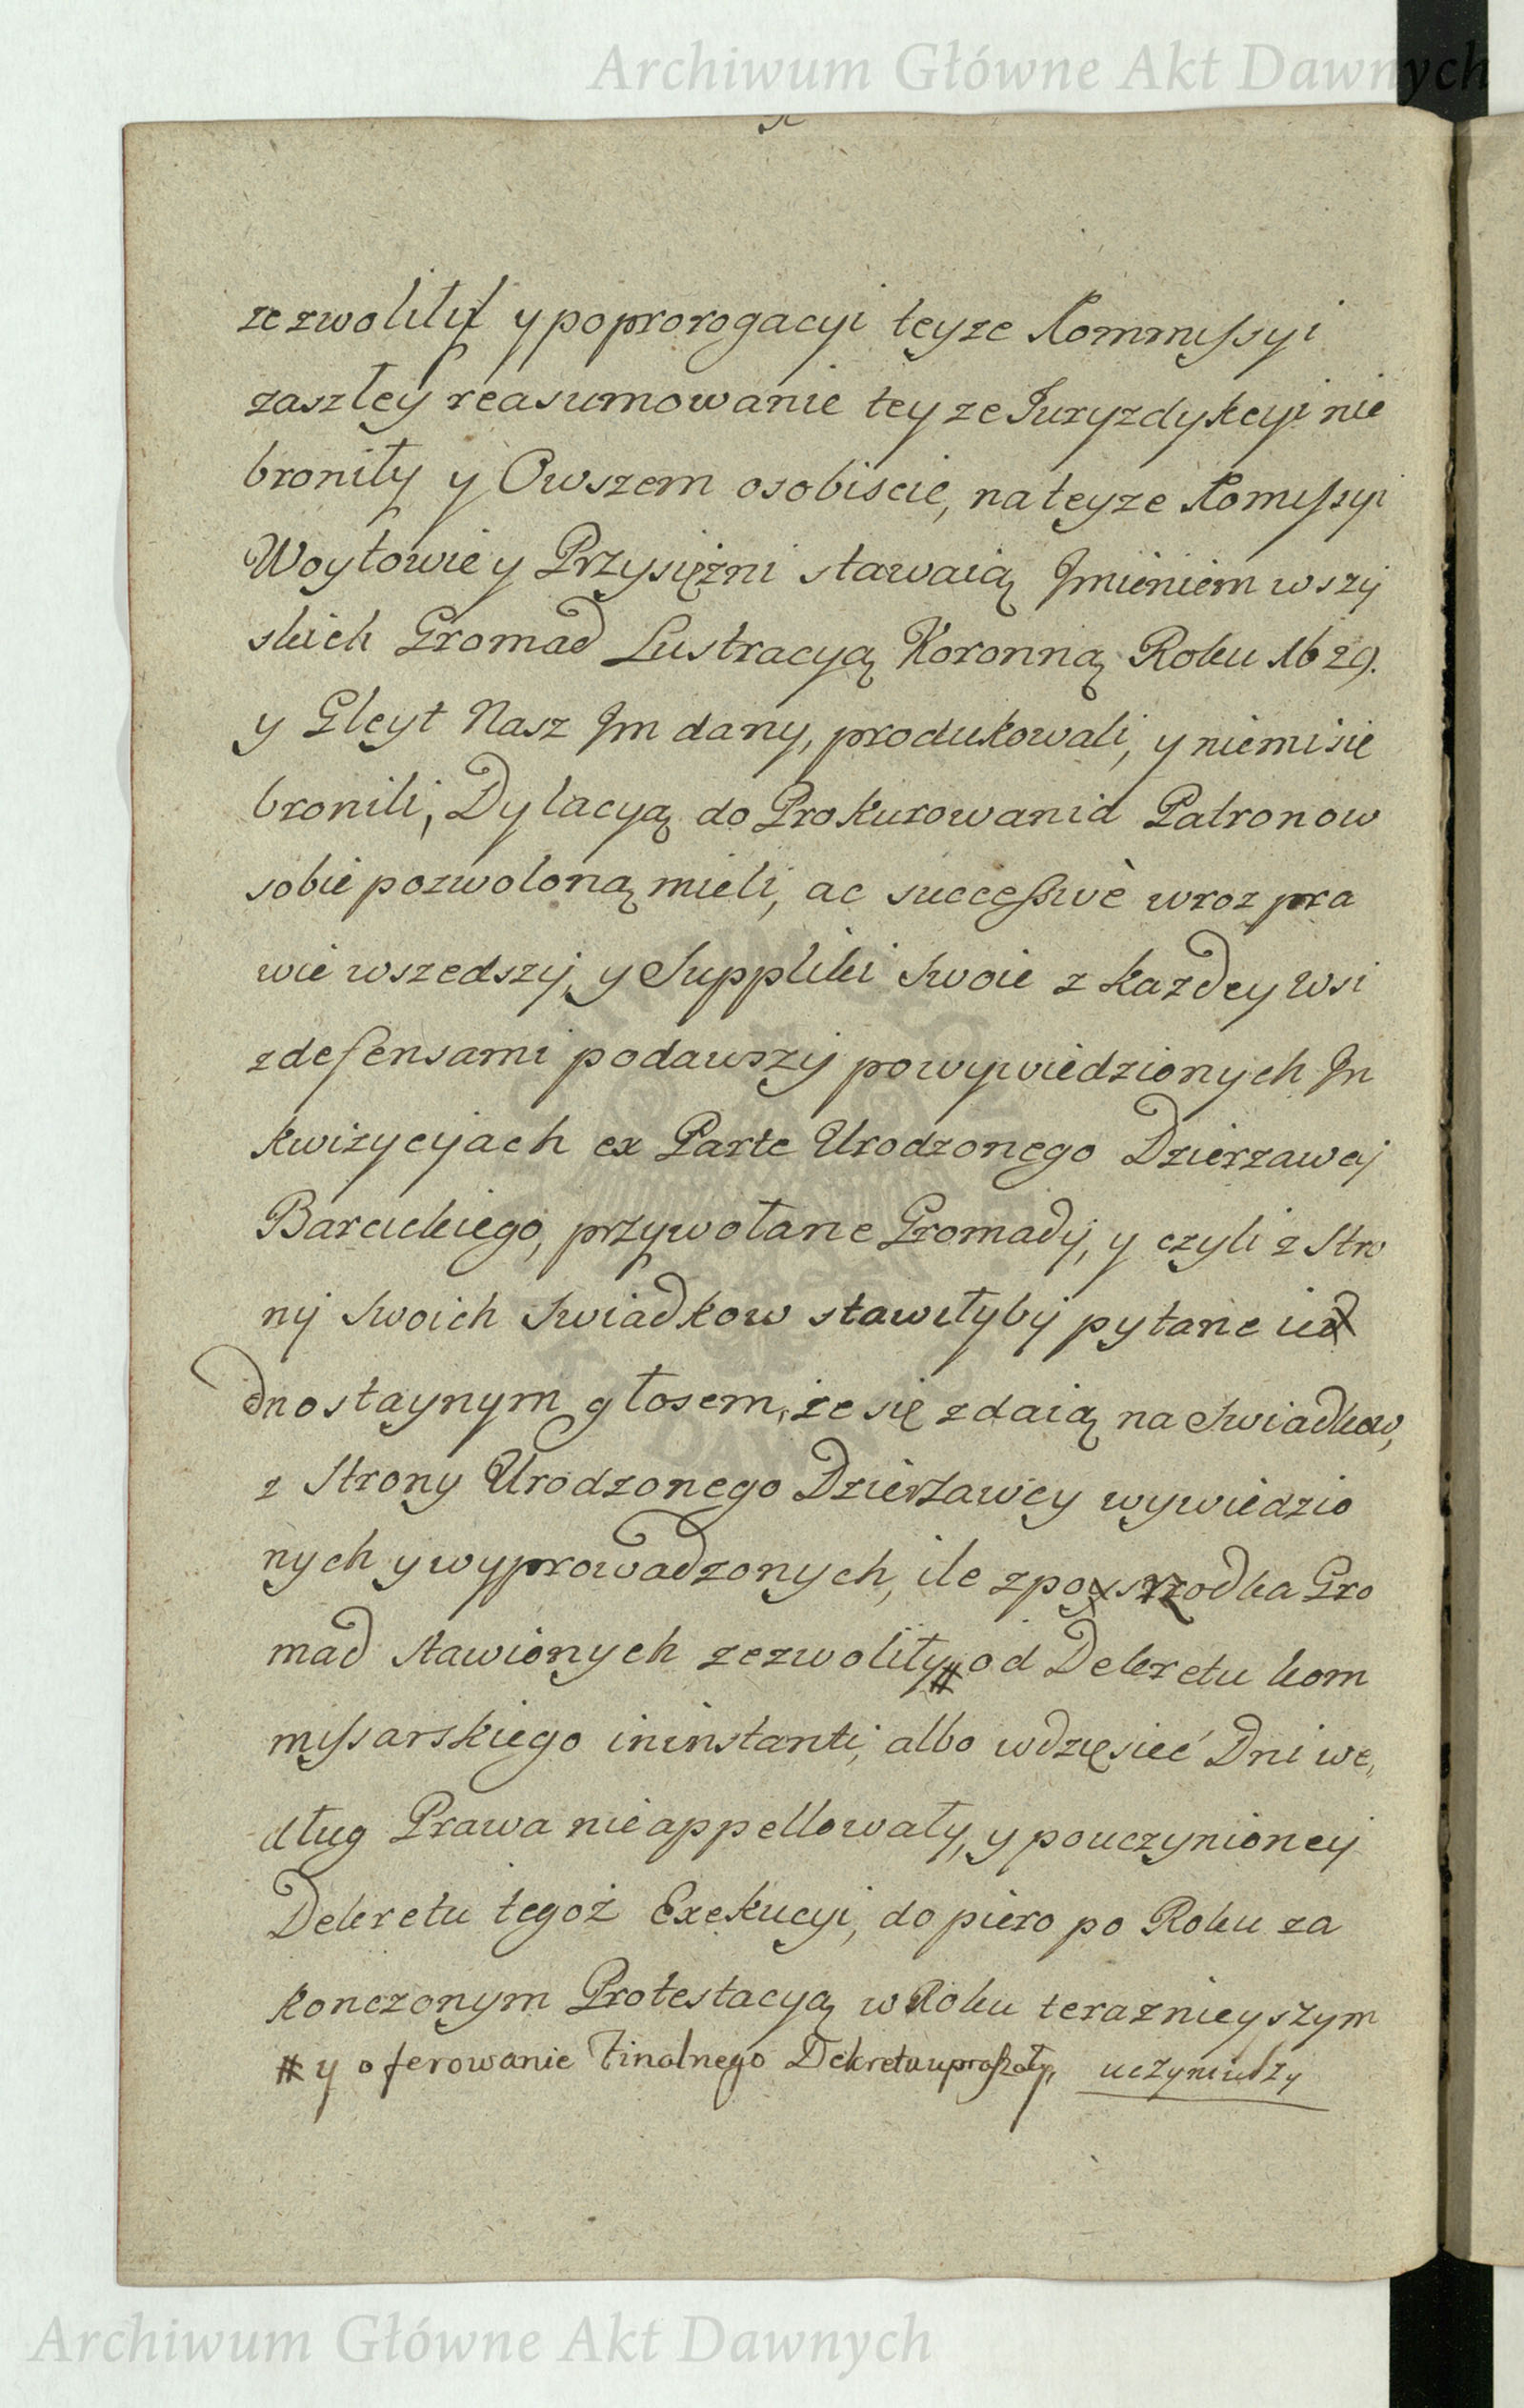 Archiwum Główne Akt Dawnych
zezwoliły y poprorogacyi teyze Kommissyi
zaszłey reasumowanie teyze Juryzdykcyi nie
broniły y Owszem osobiscie, na teyze Komissyi
Woytowie y Przysiężni stawaią Jmieniem wszy
skich Gromad Lustracyą Koronną Roku 1629.
y Gleyt Nasz Jm dany, produkowali, y niemi sie
bronili, Dylacyą do Prokurowania Patronow
sobie pozwoloną mieli, ac successivè wroz pra
wie wszedszy, y Suppliki Swoie z każdey wsi
z defensami podawszy powywiedzionych Jn
kwizycyjach ex Parte Urodzonego Dzierzawcy
Barcickiego, przywołane Gromady, y czyli z Stro
ny Swoich Swiadkow stawiłyby pytane ie
dnostaynym głosem, że się zdaią na Swiadkow,
z Strony Urodzonego Dzierżawcy wywiedzio
nych y wyprowadzonych, ile zposrzodka Gro
mad Stawionych zezwoliły # od Dekretu kom
missarskiego in instanti, albo wdzięsieć Dni we,
dług Prawa nie appellowały, y pouczynioney
Dekretu tegoż Exekucyi, dopiero po Roku za
konczonym Protestacyą w Roku teraznieyszym
# y oferowanie Finalnego Dekretu upraszały, uczyniwszy
Archiwum Główne Akt Dawnych